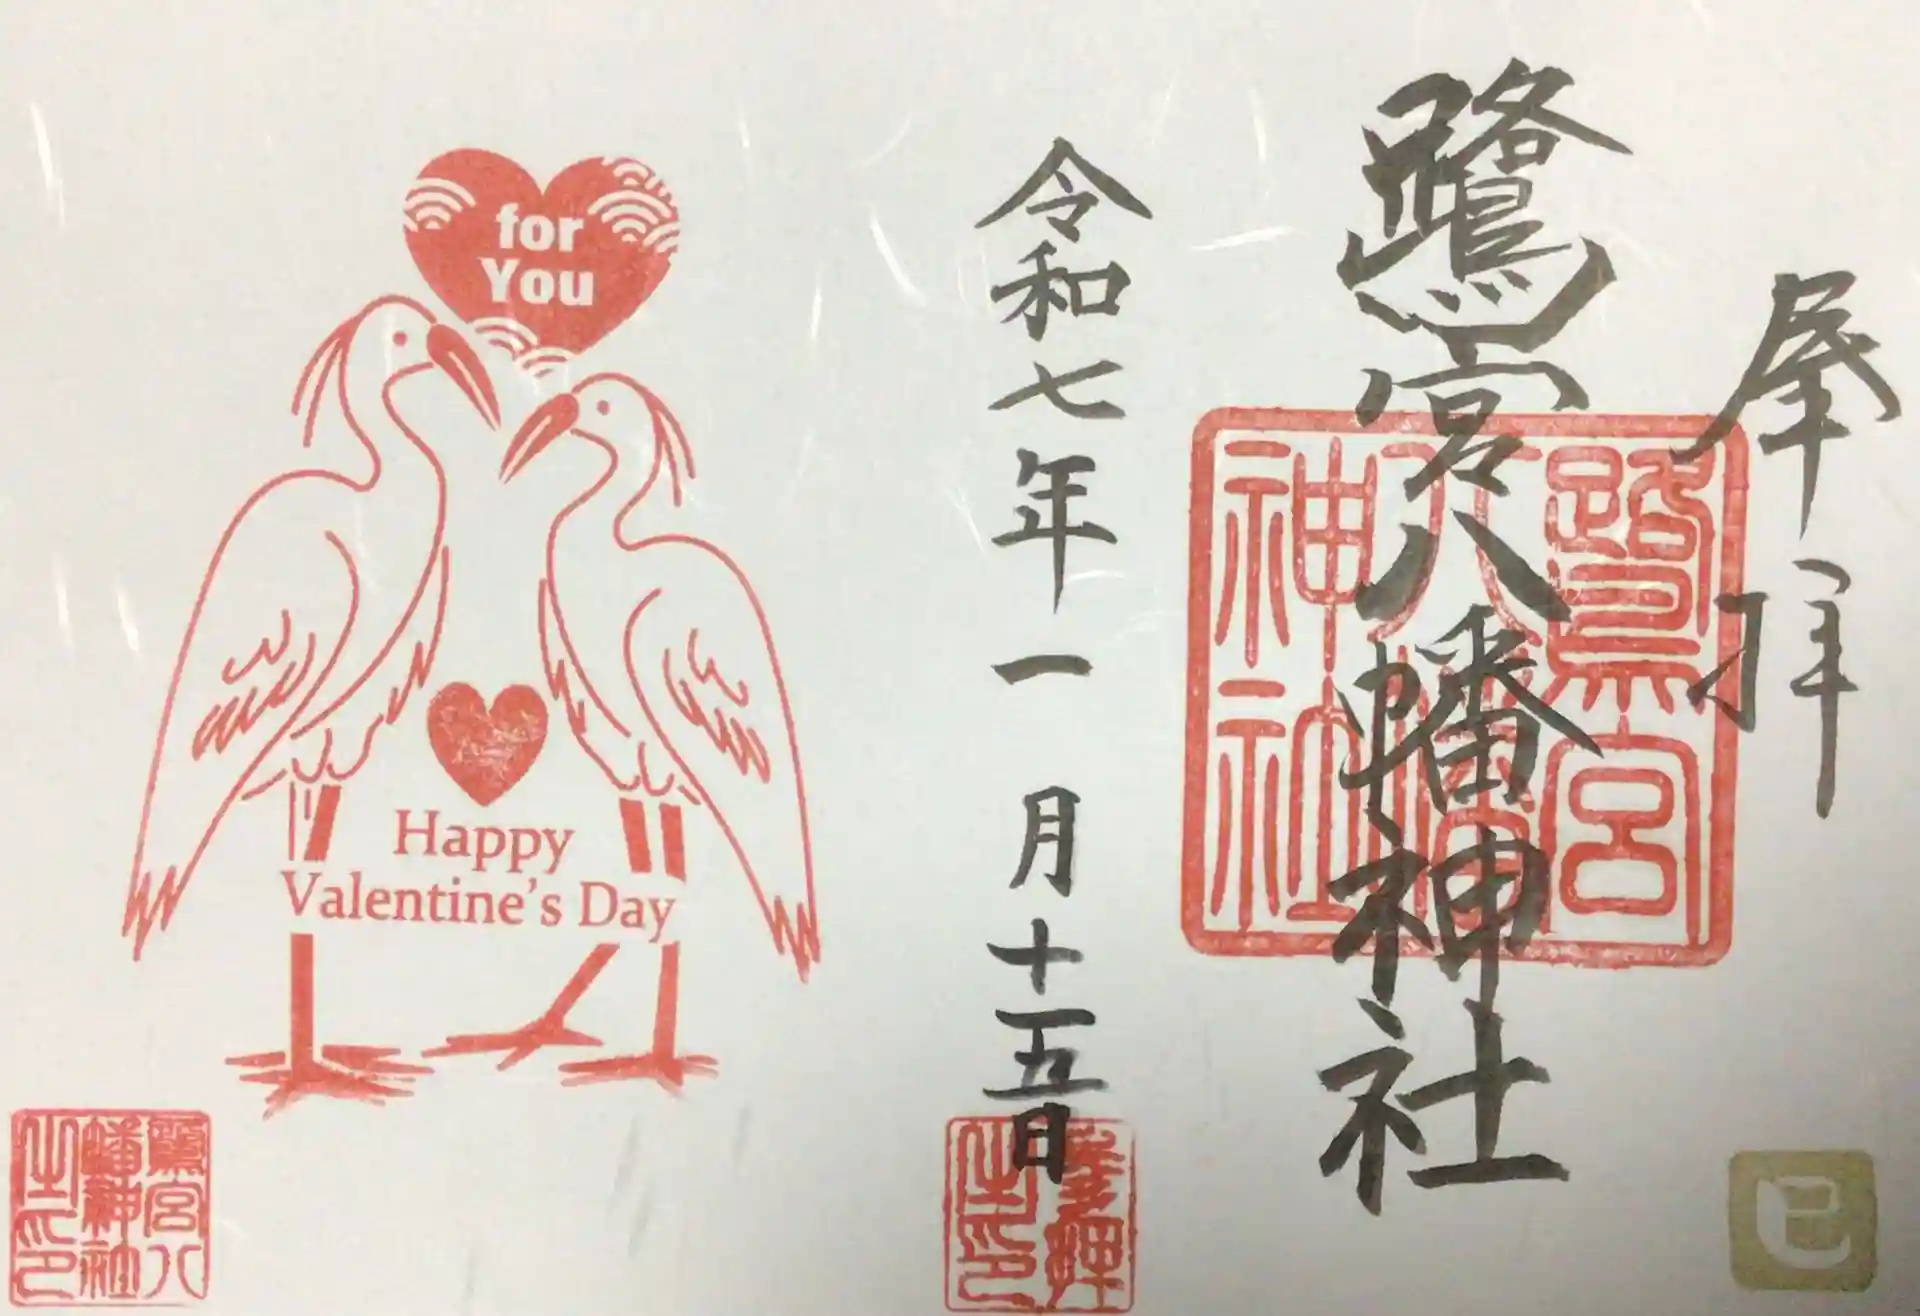 奉拝
鷺宮八幡神社
鷺宮
八幡
神社
令和七年一月十五日
for
You
Happy
Valentine's Day
鷺宮八
幡神社
之印
之印
巳